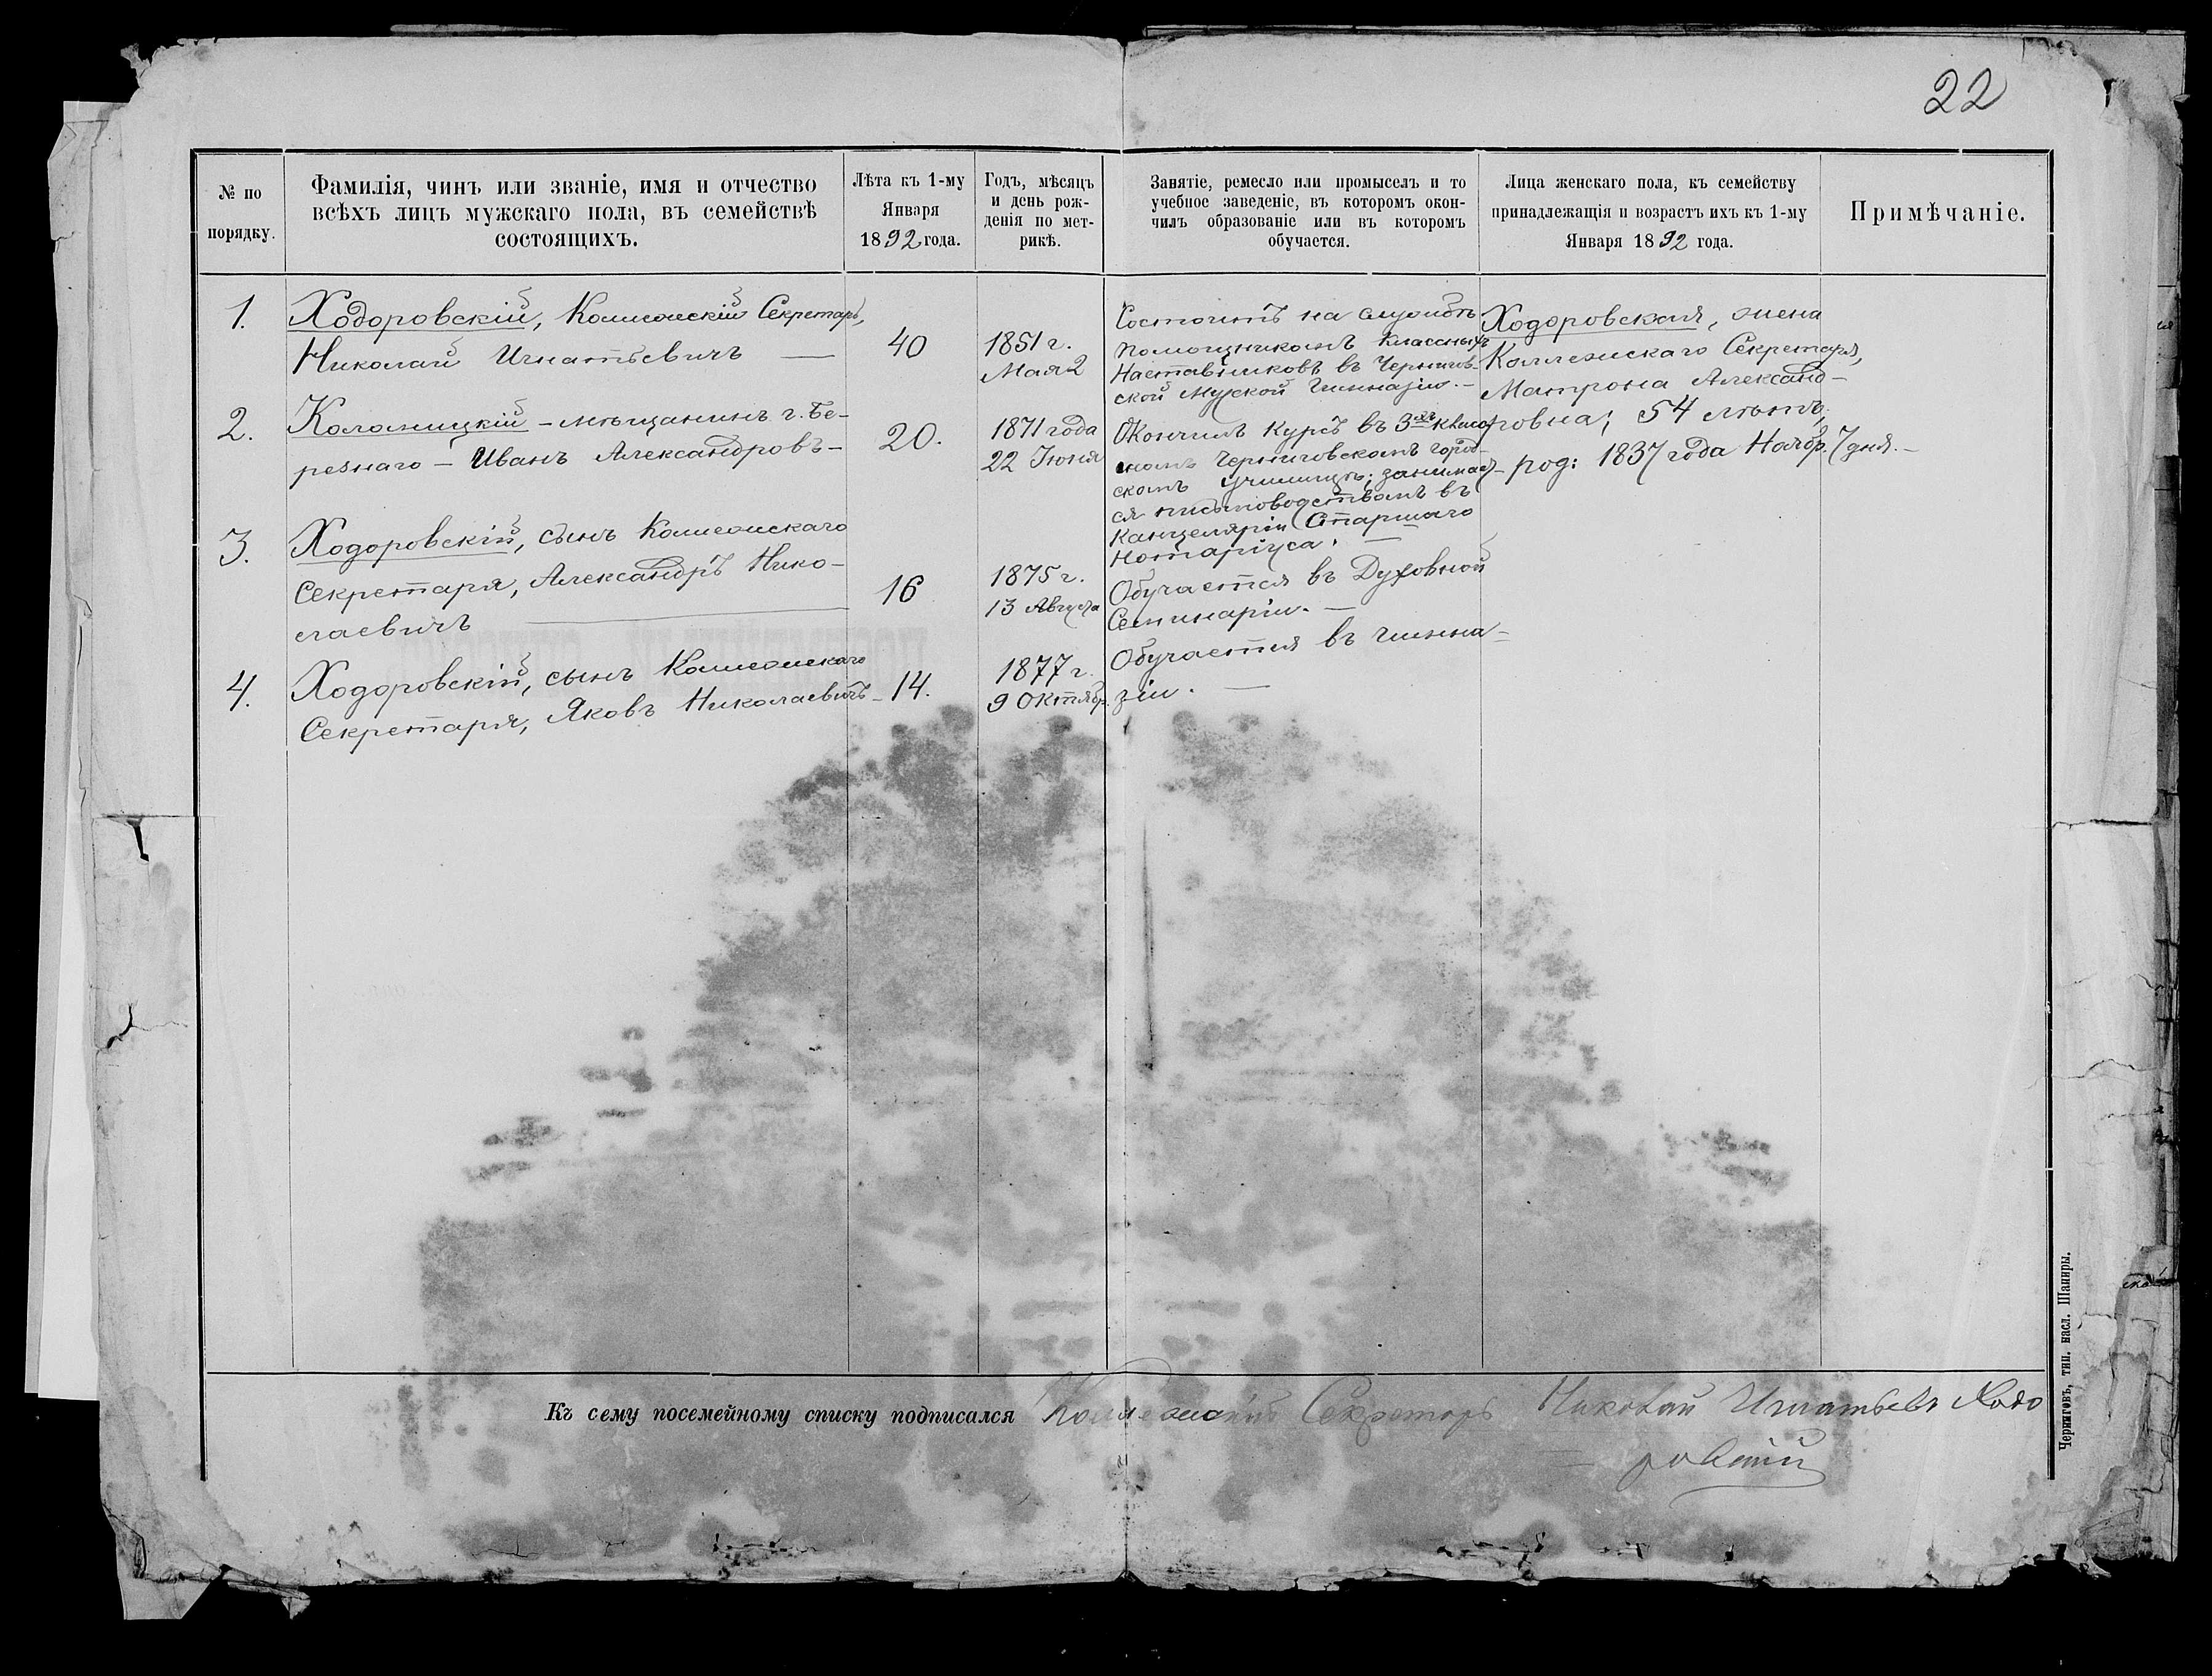 22
№ по порядку.
Фамилія, чинъ или званіе, имя и отчество
всѣхъ лицъ мужскаго пола, въ семействѣ
состоящихъ.
Лѣта къ 1-му
Января
1892 года.
Годъ, мѣсяцъ
и день рож-
денія по мет-
рикѣ.
Занятіе, ремесло или промыселъ и то
учебное заведеніе, въ которомъ окон-
чилъ образованіе или въ которомъ
обучается.
Лица женскаго пола, къ семейству
принадлежащія и возрастъ ихъ къ 1-му
Января 1892 года.
Примѣчаніе.
1.
Ходоровскій, Коллежскій Секретарь,
Николай Игнатьевичъ —
40
1851 г.
Мая 2
Состоитъ на службѣ
помощникомъ Классныхъ
Наставниковъ въ Чернигов-
ской Мужской Гимназіи. —
Ходоровская, жена
Коллежскаго Секретаря,
Матрона Александ-
ровна; 54 лѣтъ,
род: 1837 года Ноябр. 7 дня. —
2.
Коломицкій — мѣщанинъ г. Бе-
резнаго — Иванъ Александровъ —
20.
1871 года
22 Іюня
Окончилъ курсъ въ 3хъ класс
номъ Черниговскомъ город-
скомъ училищѣ; занимает-
ся письмоводствомъ въ
Канцеляріи Старшаго
Нотаріуса. —
3.
Ходоровскій, сынъ Коллежскаго
Секретаря, Александръ Нико-
лаевичъ
16
1875 г.
13 Августа
Обучается въ Духовной
Семинаріи. —
4.
Ходоровскій, сынъ Коллежскаго
Секретаря, Яковъ Николаевичъ —
14.
1877 г.
9 Октябр.
Обучается въ гимна-
зіи. —
Къ сему посемейному списку подписался Коллежскій Секретарь Николай Игнатьевъ Ходо
ровскій
Черниговъ, тип. насл. Шапиры.